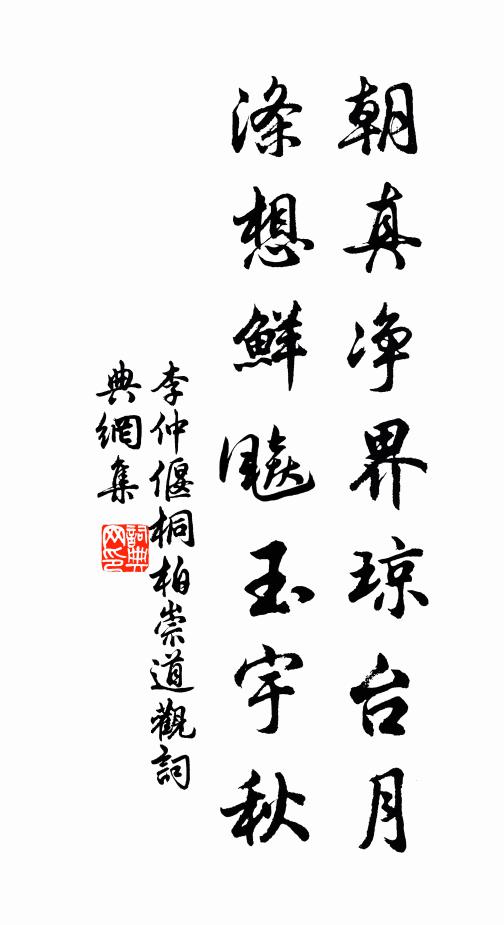 朝真净界琼台月
涤想鲜飚玉宇秋
李仲偃桐柏崇道觀詞
典網集
詞典
网印